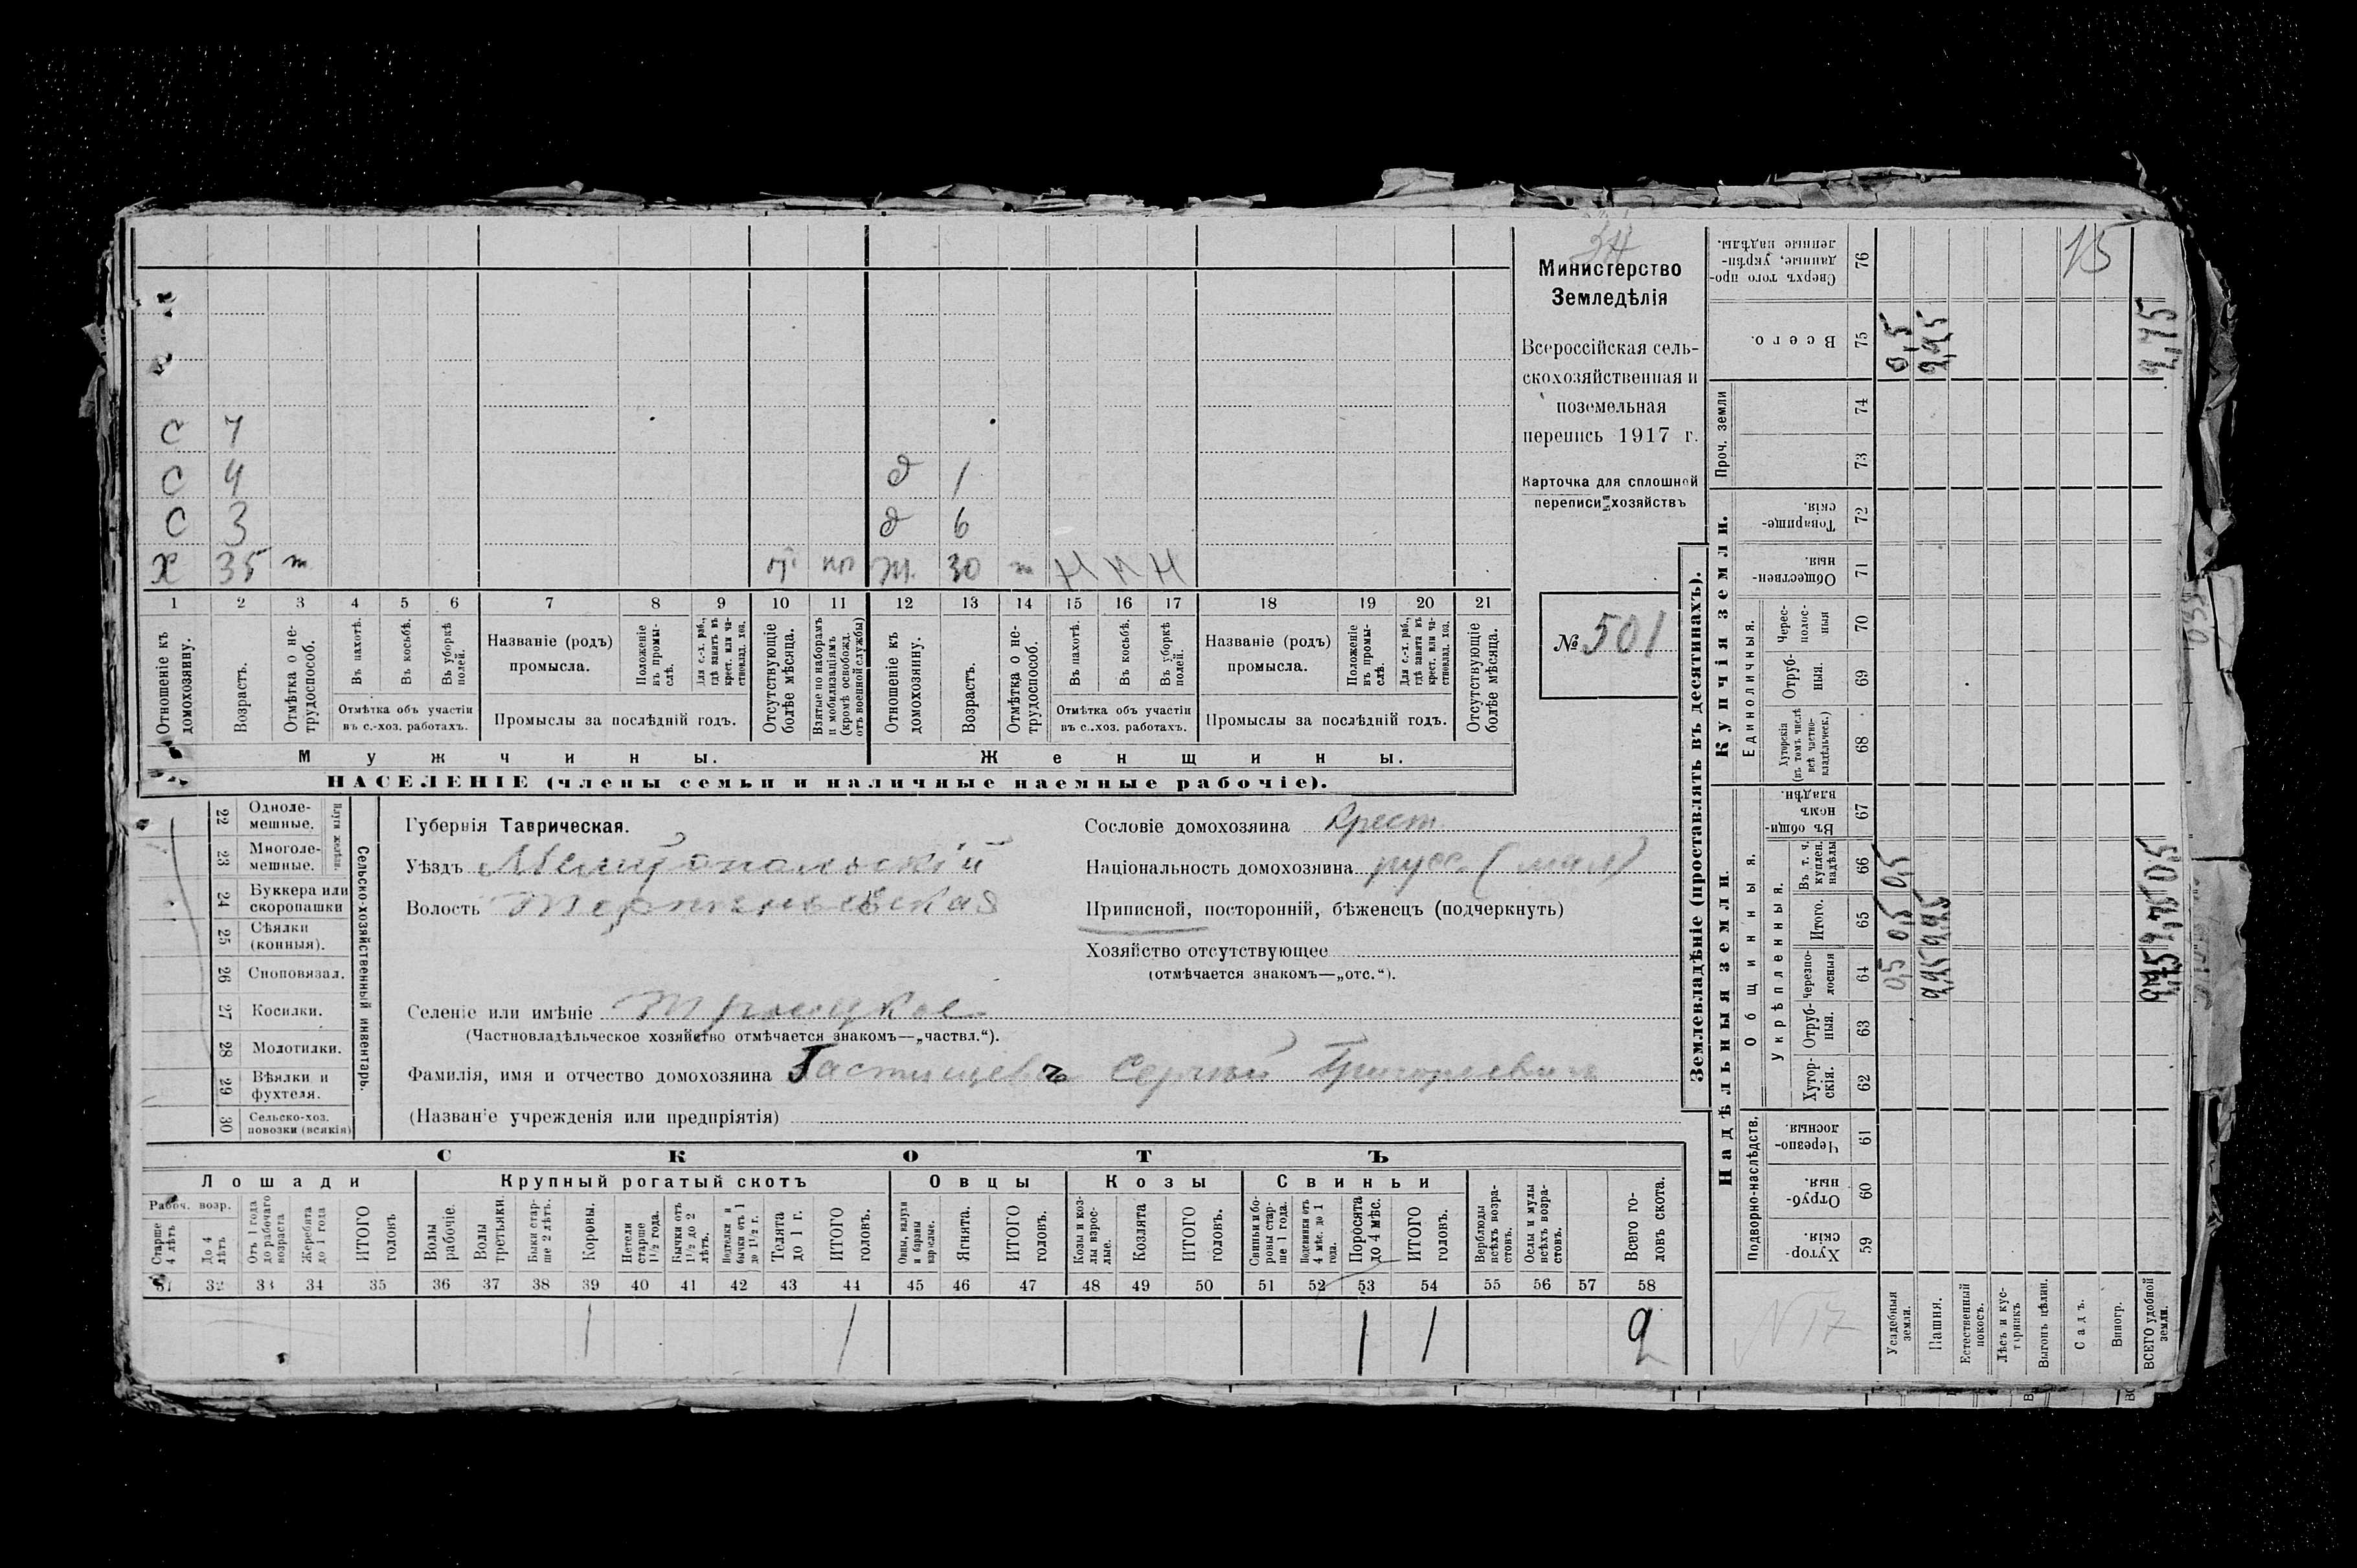 34
Министерство
Земледѣлія
Всероссійская сель-
скохозяйственная и
поземельная
перепись 1917 г.
Карточка для сплошной
переписи хозяйствъ
№ 501
С 7
С 4 д 1
С 3 д 6
Х 35 т ж. 30 т Н Н Н
1 2 3 4 5 6 7 8 9 10 11 12 13 14 15 16 17 18 19 20 21
Отношеніе къ домохозяину.
Возрастъ.
Отмѣтка о не-трудоспособ.
Въ пахотѣ.
Въ косьбѣ.
Въ уборкѣ полей.
Отмѣтка объ участіи
въ с.-хоз. работахъ.
Названіе (родъ)
промысла.
Положеніе въ промы-слѣ.
Для с.-х. раб., гдѣ занятъ въ крест. или ча-стновлад. хоз.
Промыслы за послѣдній годъ.
Отсутствующіе болѣе мѣсяца.
Взятые по наборамъ и мобилизаціямъ (кромѣ освобожд. отъ военной службы)
Отношеніе къ домохозяину.
Возрастъ.
Отмѣтка о не-трудоспособ.
Въ пахотѣ.
Въ косьбѣ.
Въ уборкѣ полей.
Отмѣтка объ участіи
въ с.-хоз. работахъ.
Названіе (родъ)
промысла.
Положеніе въ промы-слѣ.
Для с.-х. раб., гдѣ занятъ въ крест. или ча-стновлад. хоз.
Промыслы за послѣдній годъ.
Отсутствующіе болѣе мѣсяца.
Мужчины. Женщины.
НАСЕЛЕНІЕ (члены семьи и наличные наемные рабочіе).
22 Одноле-мешные.
23 Многоле-мешные.
Плуги желѣзн.
24 Буккера или скоропашки
25 Сѣялки (конныя).
26 Сноповязал.
27 Косилки.
28 Молотилки.
29 Вѣялки и фухтеля.
30 Сельско-хоз. повозки (всякія)
Сельско-хозяйственный инвентарь.
Губернія Таврическая.
Уѣздъ Мелитопольскій
Волость Терпеньевская
Селеніе или имѣніе Троицкое
(Частновладѣльческое хозяйство отмѣчается знакомъ—„частвл.“).
Фамилія, имя и отчество домохозяина Гастищевъ Сергѣй Григорьевичъ
(Названіе учрежденія или предпріятія)
Сословіе домохозяина Крест
Національность домохозяина русс. (мал)
Приписной, посторонній, бѣженецъ (подчеркнуть)
Хозяйство отсутствующее
(отмѣчается знакомъ—„отс.“).
СКОТЪ
Лошади Крупный рогатый скотъ Овцы Козы Свиньи
Рабоч. возр.
Старше 4 лѣтъ
До 4 лѣтъ
Отъ 1 года до рабочаго возраста
Жеребята до 1 года
ИТОГО головъ
Волы рабочіе.
Волы третьяки.
Быки стар-ше 2 лѣтъ.
Коровы.
Нетели старше 1½ года.
Бычки отъ 1½ до 2 лѣтъ.
Подтелки и бычки отъ 1 до 1½ г.
Телята до 1 г.
ИТОГО головъ.
Овцы, валухи и бараны взрослые.
Ягнята.
ИТОГО головъ.
Козы и коз-лы взрос-лые.
Козлята
ИТОГО головъ.
Свиньи и бо-ровы стар-ше 1 года.
Подсвинки отъ 4 мѣс. до 1 года.
Поросята до 4 мѣс.
ИТОГО головъ.
Верблюды всѣхъ возра-стовъ.
Ослы и мулы всѣхъ возра-стовъ.
Всего го-ловъ скота.
31 32 33 34 35 36 37 38 39 40 41 42 43 44 45 46 47 48 49 50 51 52 53 54 55 56 57 58
1 1 1 1 2
Землевладѣніе (проставлять въ десятинахъ).
Надѣльныя земли. Купчія земли.
Проч. земли
Подворно-наслѣдств.
Общинныя.
Укрѣпленныя.
Единоличныя.
Хутор-скія. 59
Отруб-ныя. 60
Черезпо-лосныя 61
Хутор-скія. 62
Отруб-ныя. 63
Черезпо-лосныя 64
Итого. 65
Въ т. ч. куплен. надѣлы 66
Въ общи-номъ владѣн. 67
Хуторскія (въ томъ числѣ всѣ частно-владѣльческ.) 68
Отруб-ныя. 69
Черес-полос-ныя 70
Обществен-ныя. 71
Товарище-скія. 72
73
74
Всего. 75
Сверхъ того про-данные, укрѣп-ленные надѣлы. 76
Усадебныя земли. 0,5 0,5 0,5 0,5
Пашня.
Естественный покосъ.
Лѣсъ и кус-тарникъ
Выгонъ цѣлин.
Садъ.
Виногр.
ВСЕГО удобной земли.
15
N 17